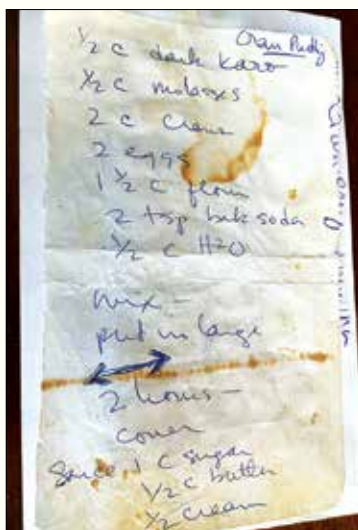 Cran Pudg
1/2 c dark karo
1/2 c molasses
2 c Crans
2 eggs
1 1/2 c flour
2 tsp bak soda
1/2 c H2O
mix -
put in large
2 hours -
cover
Sauce 1 c sugar
1/2 c butter
1/2 cream